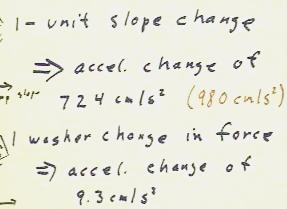 1-unit slope change
⇒ accel. change of
slope 724 cm/s² (980 cm/s²)
1 washer change in force
⇒ accel. change of
9.3 cm/s²